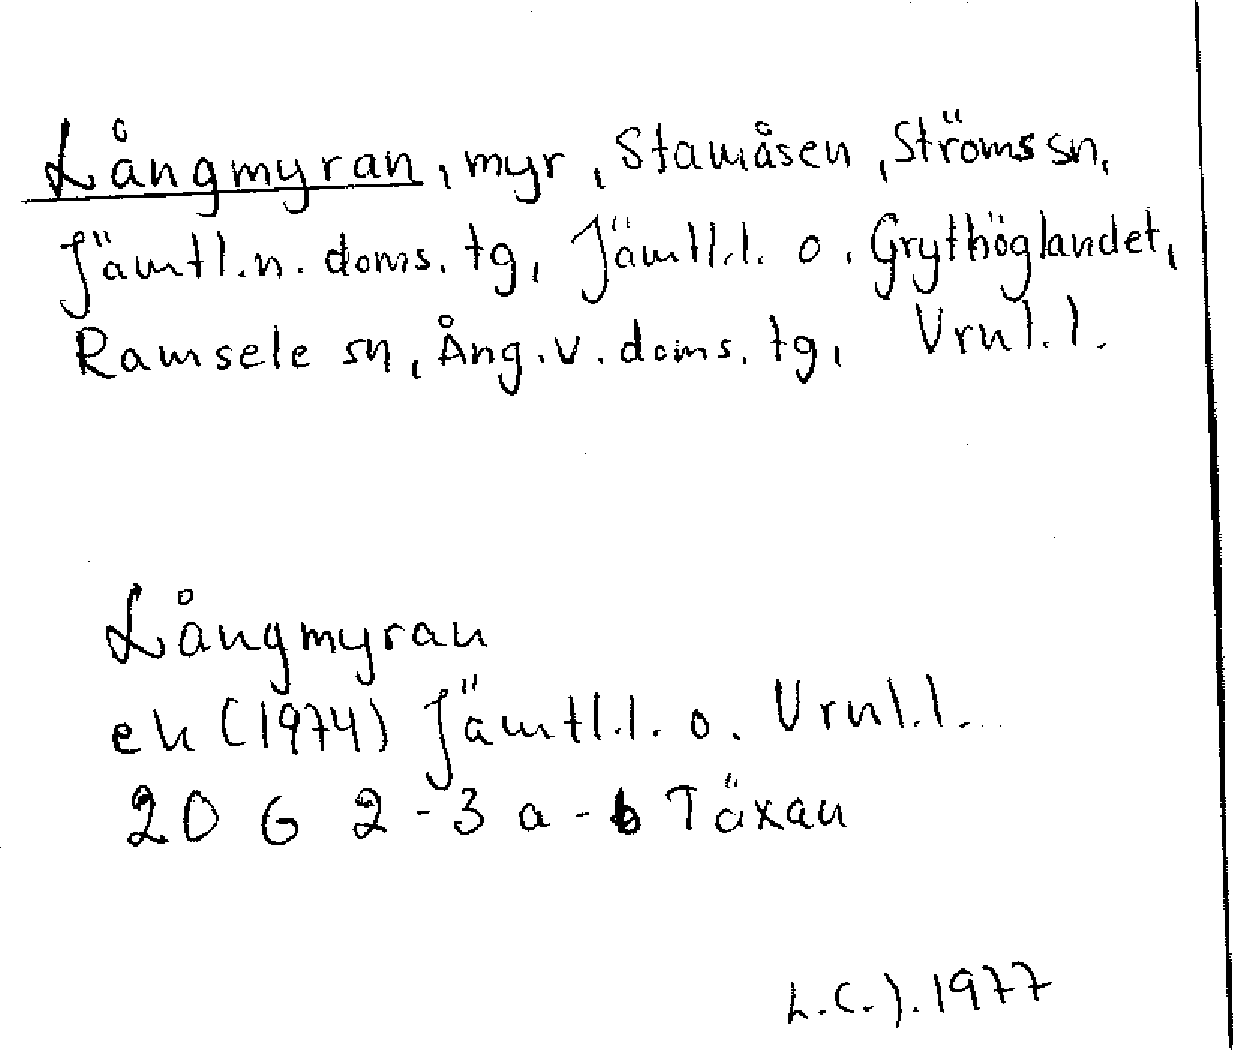 Långmyran, myr, Stamåsen, Ströms sn,
Jämtl.n. doms. tg, Jämtl.l. o. Grythöglandet,
Ramsele sn, Ång.v. doms. tg, Vrnl.l.
Långmyran
ek (1974) Jämtl.l. o. Vrnl.l.
20 G 2-3 a-b Täxan
L.C.J. 1977